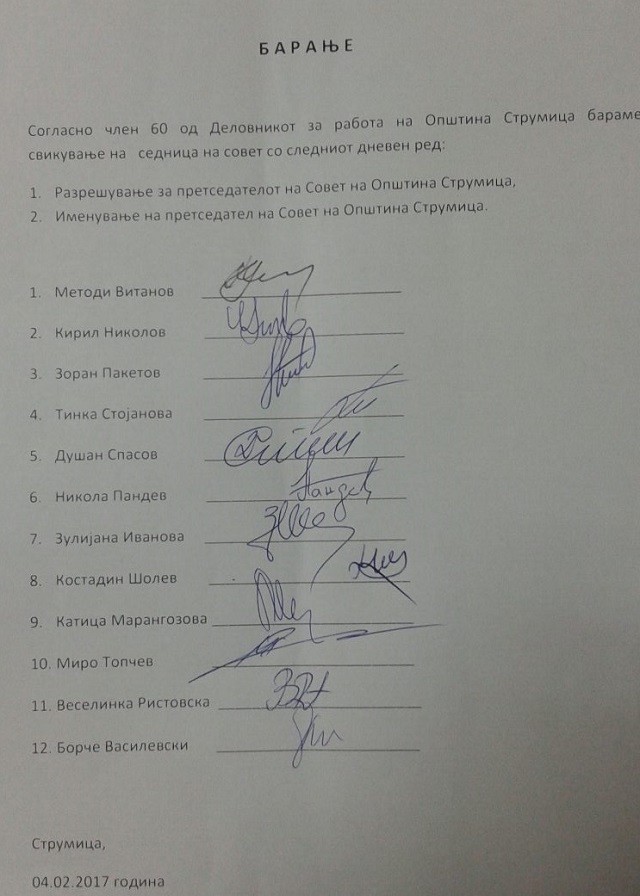 БАРАЊЕ
Согласно член 60 од Деловникот за работа на Општина Струмица бараме
свикување на седница на совет со следниот дневен ред:
1. Разрешување за претседателот на Совет на Општина Струмица,
2. Именување на претседател на Совет на Општина Струмица.
1. Методи Витанов
2. Кирил Николов
3. Зоран Пакетов
4. Тинка Стојанова
5. Душан Спасов
6. Никола Пандев
7. Зулијана Иванова
8. Костадин Шолев
9. Катица Марангозова
10. Миро Топчев
11. Веселинка Ристовска
12. Борче Василевски
Струмица,
04.02.2017 година